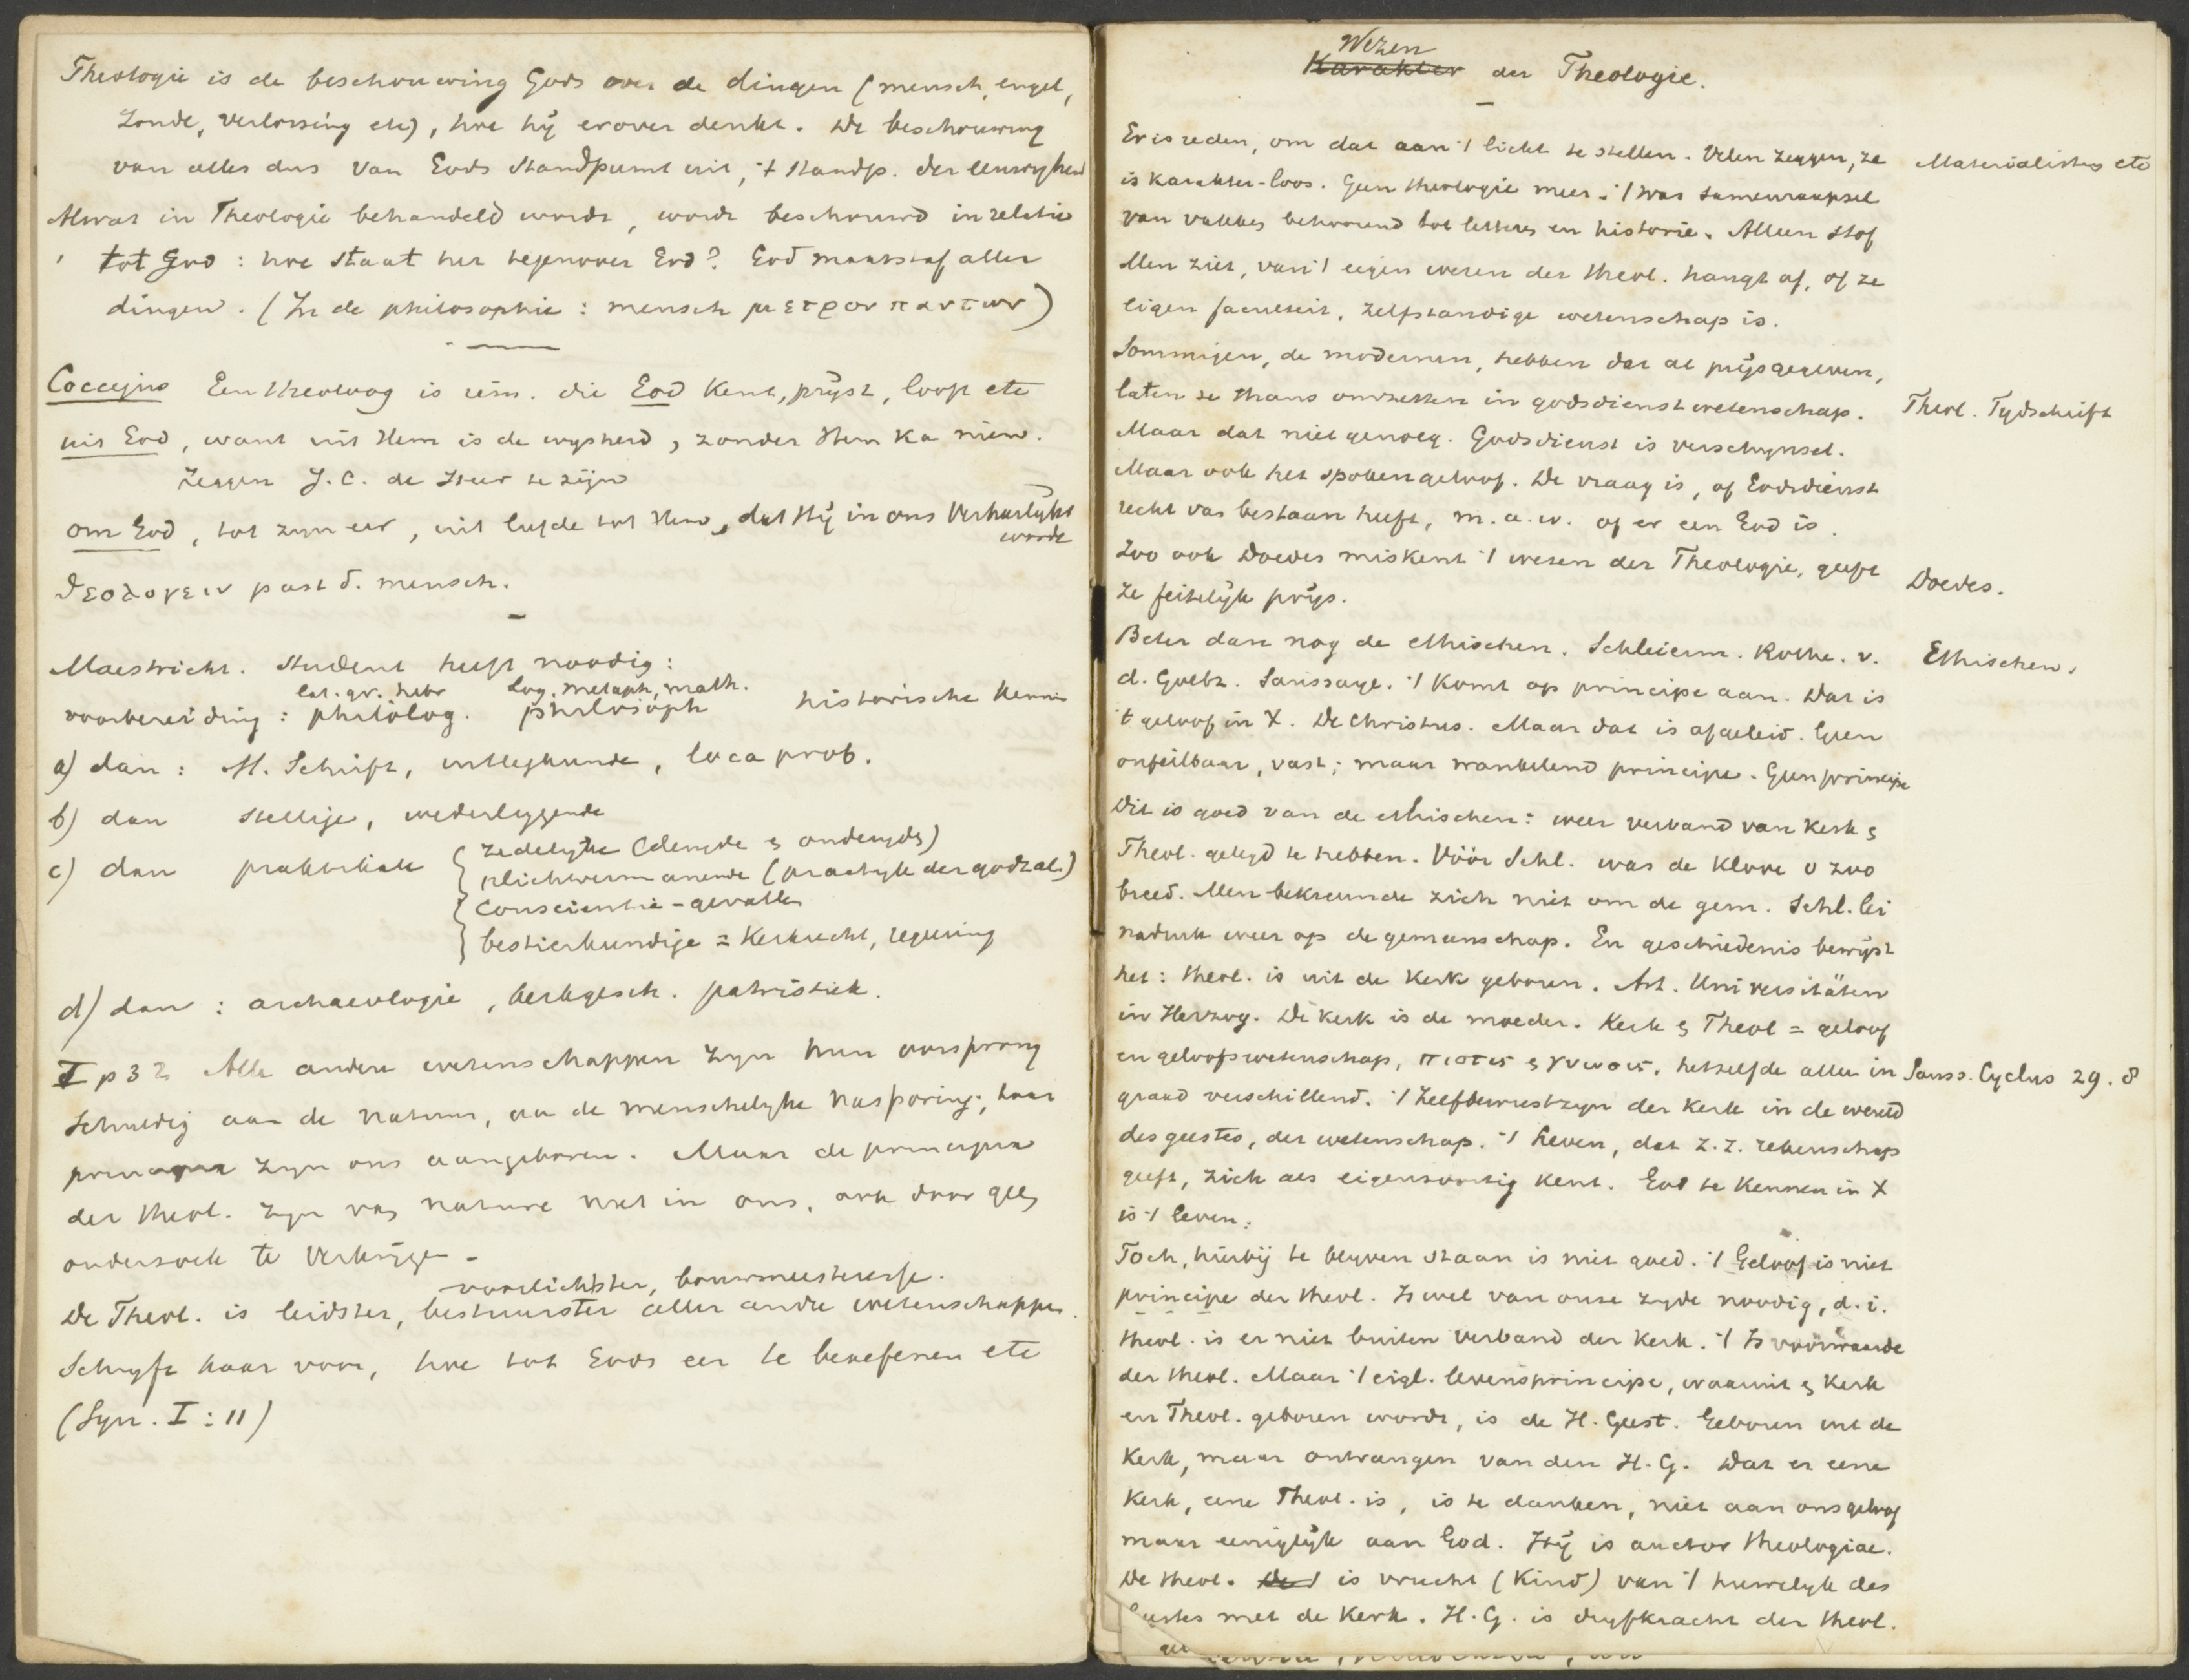 Theologie is de beschouwing Gods over de dingen (mensch, engel,
zonde, verlossing etc), hoe hij erover denkt. De beschouwing
van alles dus van Gods standpunt uit, 't standp. der eeuwigheid
Alwat in Theologie behandeld wordt, wordt beschouwd in relatie
tot God: hoe staat het tegenover God? God maatstaf aller
dingen. (In de philosophie: mensch μετρον παντων)
Coccejus Een theoloog is iem. die God kent, prijst, looft etc
uit God, want uit Hem is de wysheid, zonder Hem ka niem.
zeggen J. C. de Heer te zijn
om God, tot zyn eer, uit liefde tot Hem, dat Hij in ons verheerlykt
worde
θεολογειν past d. mensch.
Maestricht. Student heeft noodig:
lat. gr. hebr log. metaph, math.
voorbereiding: philolog. philosoph historische kennis
a) dan: H. Schrift, uitlegkunde, loca prob.
b) dan stellige, wederleggende
c) dan praktikale { zedelyke (deugde & ondeugds)
plichtvermanende (practyk der godzal.)
conscientie-gevallen
bestierkundige = Kerkrecht, regeering
d) dan: archaeologie, kerkgesch. patristiek.
I p 32 Alle andere wetenschappen zyn hun oorsprong
schuldig aan de natuur, aan de menschelyke nasporing; haar
principia zyn ons aangeboren. Maar de principia
der theol. zyn van nature niet in ons, ook door geen
onderzoek te verkrijgen.
voorlichtster, bouwmeesteresse.
De Theol. is leidster, bestuurster aller andre wetenschappen.
Schryft haar voor, hoe tot Gods eer te beoefenen etc
(Syn. I: 11)
Wezen
Karakter der Theologie.
Er is reden, om dat aan 't licht te stellen. Velen zeggen, ze
is karakter-loos. Geen theologie meer. 't was samenraapsel
van vakken behoorend tot letteren en historie. Alleen stof
Men ziet, van 't eigen wezen der theol. hangt af, of ze
eigen faculteit, zelfstandige wetenschap is.
Sommigen, de modernen, hebben dat al prijsgegeven,
laten ze thans omzetten in godsdienstwetenschap.
Maar dat niet genoeg. Godsdienst is verschynsel.
Maar ook het spokengeloof. De vraag is, of Godsdienst
recht van bestaan heeft, m. a. w. of er een God is.
Zoo ook Doedes miskent 't wezen der Theologie, geeft
ze feitelijk prijs.
Beter dan nog de ethischen. Schleierm. Rothe. v.
d. Goltz. Saussaye. 't Komt op principe aan. Dat is
't geloof in X. De Christus. Maar dat is afgeleid. Geen
onfeilbaar, vast; maar wankelend principe. Geen principe
Dit is goed van de ethischen: weer verband van Kerk &
Theol. gelegd te hebben. Vóór Schl. was de klove o zoo
breed. Men bekreunde zich niet om de gem. Schl. lei
nadruk weer op de gemeenschap. En geschiedenis bewijst
het: theol. is uit de Kerk geboren. Art. Universitäten
in Herzog. De kerk is de moeder. Kerk & Theol = geloof
en geloofswetenschap, πιστις & γνωσις, hetzelfde alleen in
graad verschillend. 't Zelfbewustzyn der Kerk in de wereld
des geestes, der wetenschap. 't Leven, dat z. z. rekenschap
geeft, zich als eigensoortig kent. God te kennen in X
is 't leven.
Toch, hierbij te blyven staan is niet goed. 't Geloof is niet
principe der theol. Is wel van onze zyde noodig, d. i.
theol. is er niet buiten verband der Kerk. 't Is voorwaarde
der theol. Maar 't eigl. levensprincipe, waaruit & Kerk
en Theol. geboren wordt, is de H. Geest. Geboren uit de
Kerk, maar ontvangen van den H. G. Dat er eene
Kerk, eene Theol. is, is te danken, niet aan ons geloof
maar eeniglijk aan God. Hij is auctor theologiae.
De theol. is vrucht (Kind) van 't huwelyk des
Geestes met de Kerk. H. G. is dryfkracht der theol.
Materialisten etc
Theol. Tydschrift
Doedes.
Ethischen.
Sauss. Cyclus 29. 8